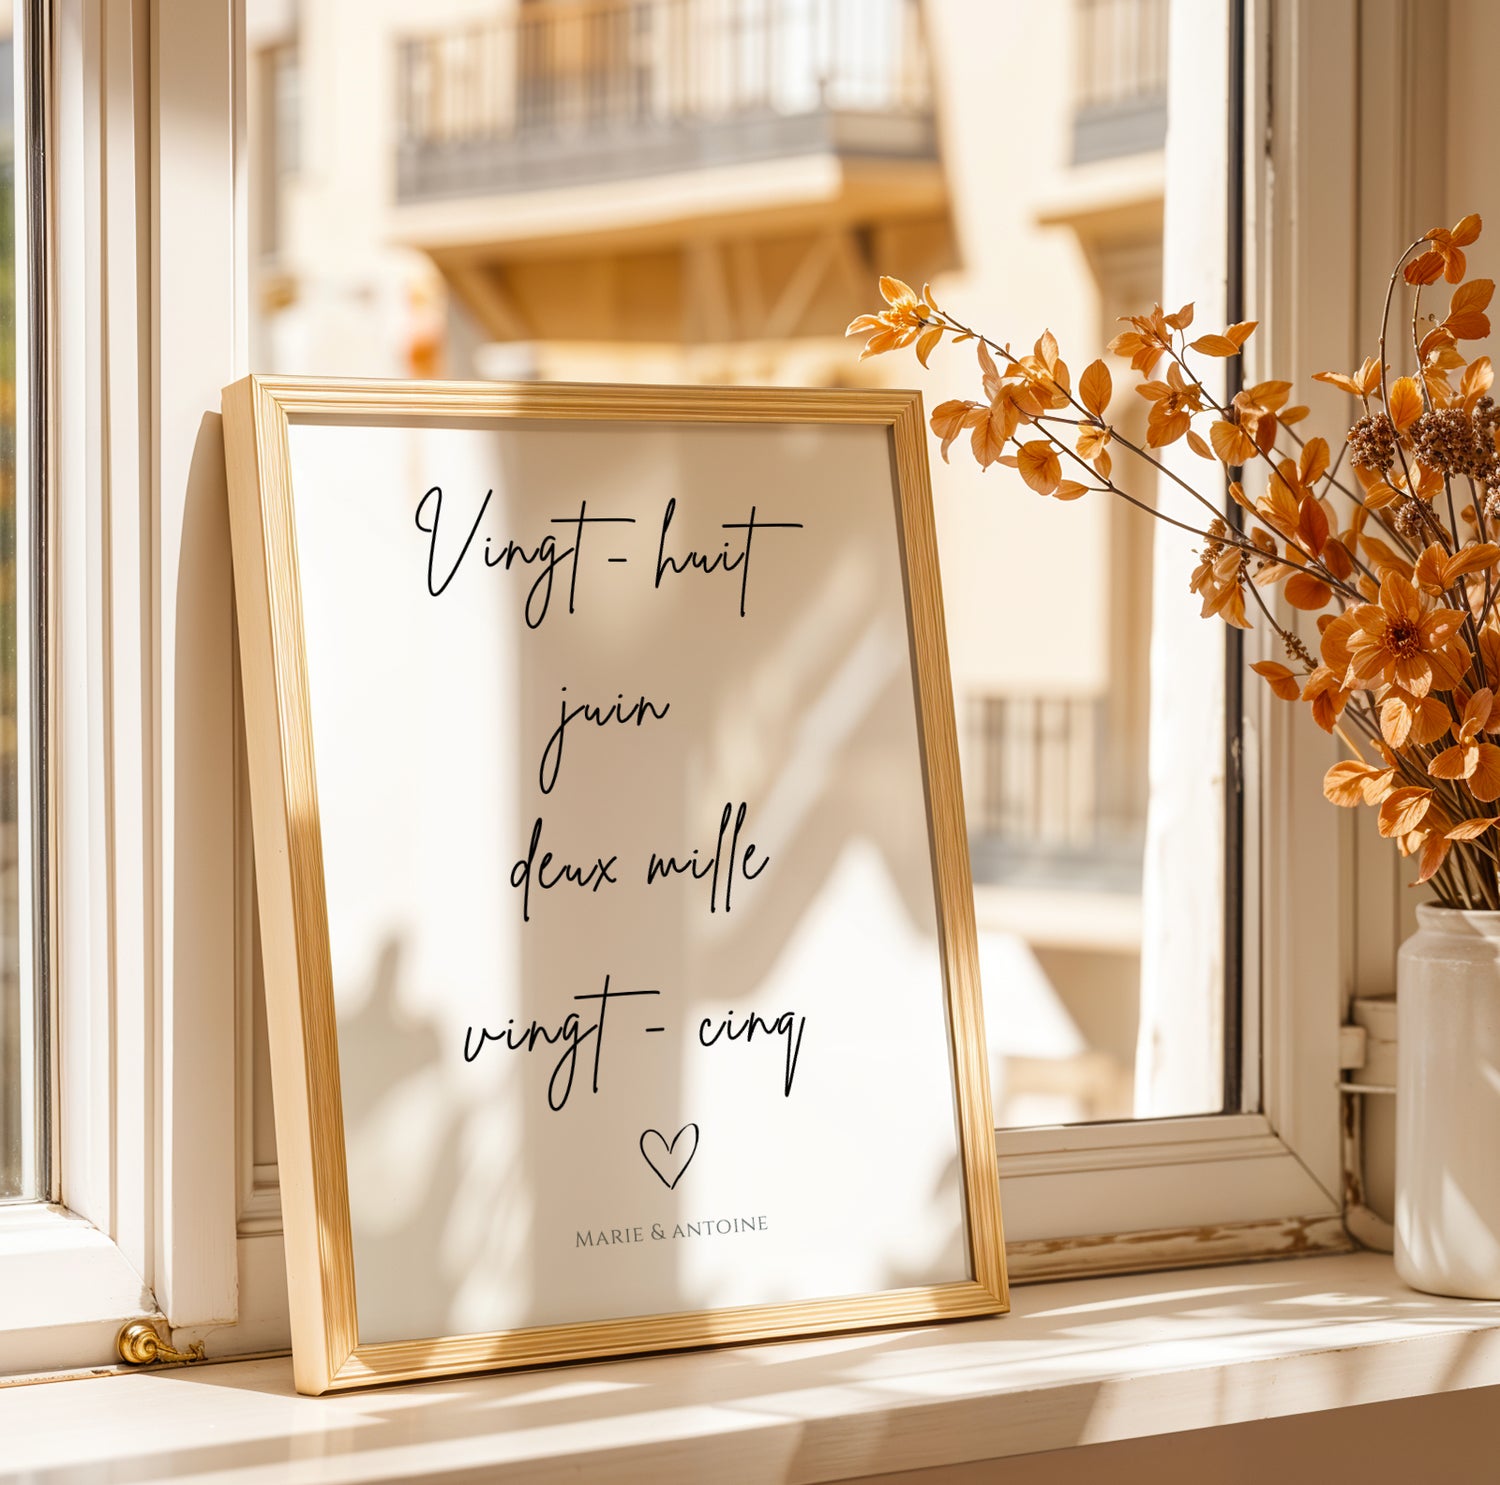 Vingt - huit
juin
deux mille
vingt - cinq
Marie & Antoine